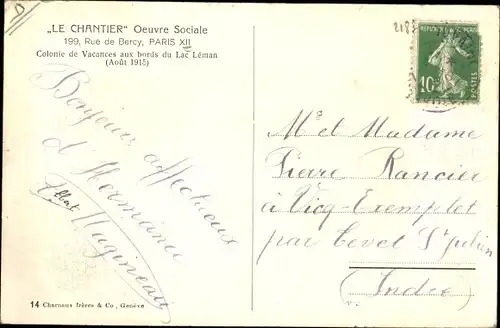 „LE CHANTIER" Oeuvre Sociale
199, Rue de Bercy, PARIS XII
Colonie de Vacances aux bords du Lac Léman
(Août 1915)
Bonjours affectueux
d'Hermance
Mr et Madame
Pierre Rancier
à Vicq-Exemplet
par Levet St Julien
(Indre)
REPUBLIQUE FRANÇAISE
10c
POSTES
14 Charnaux frères & Co, Genève